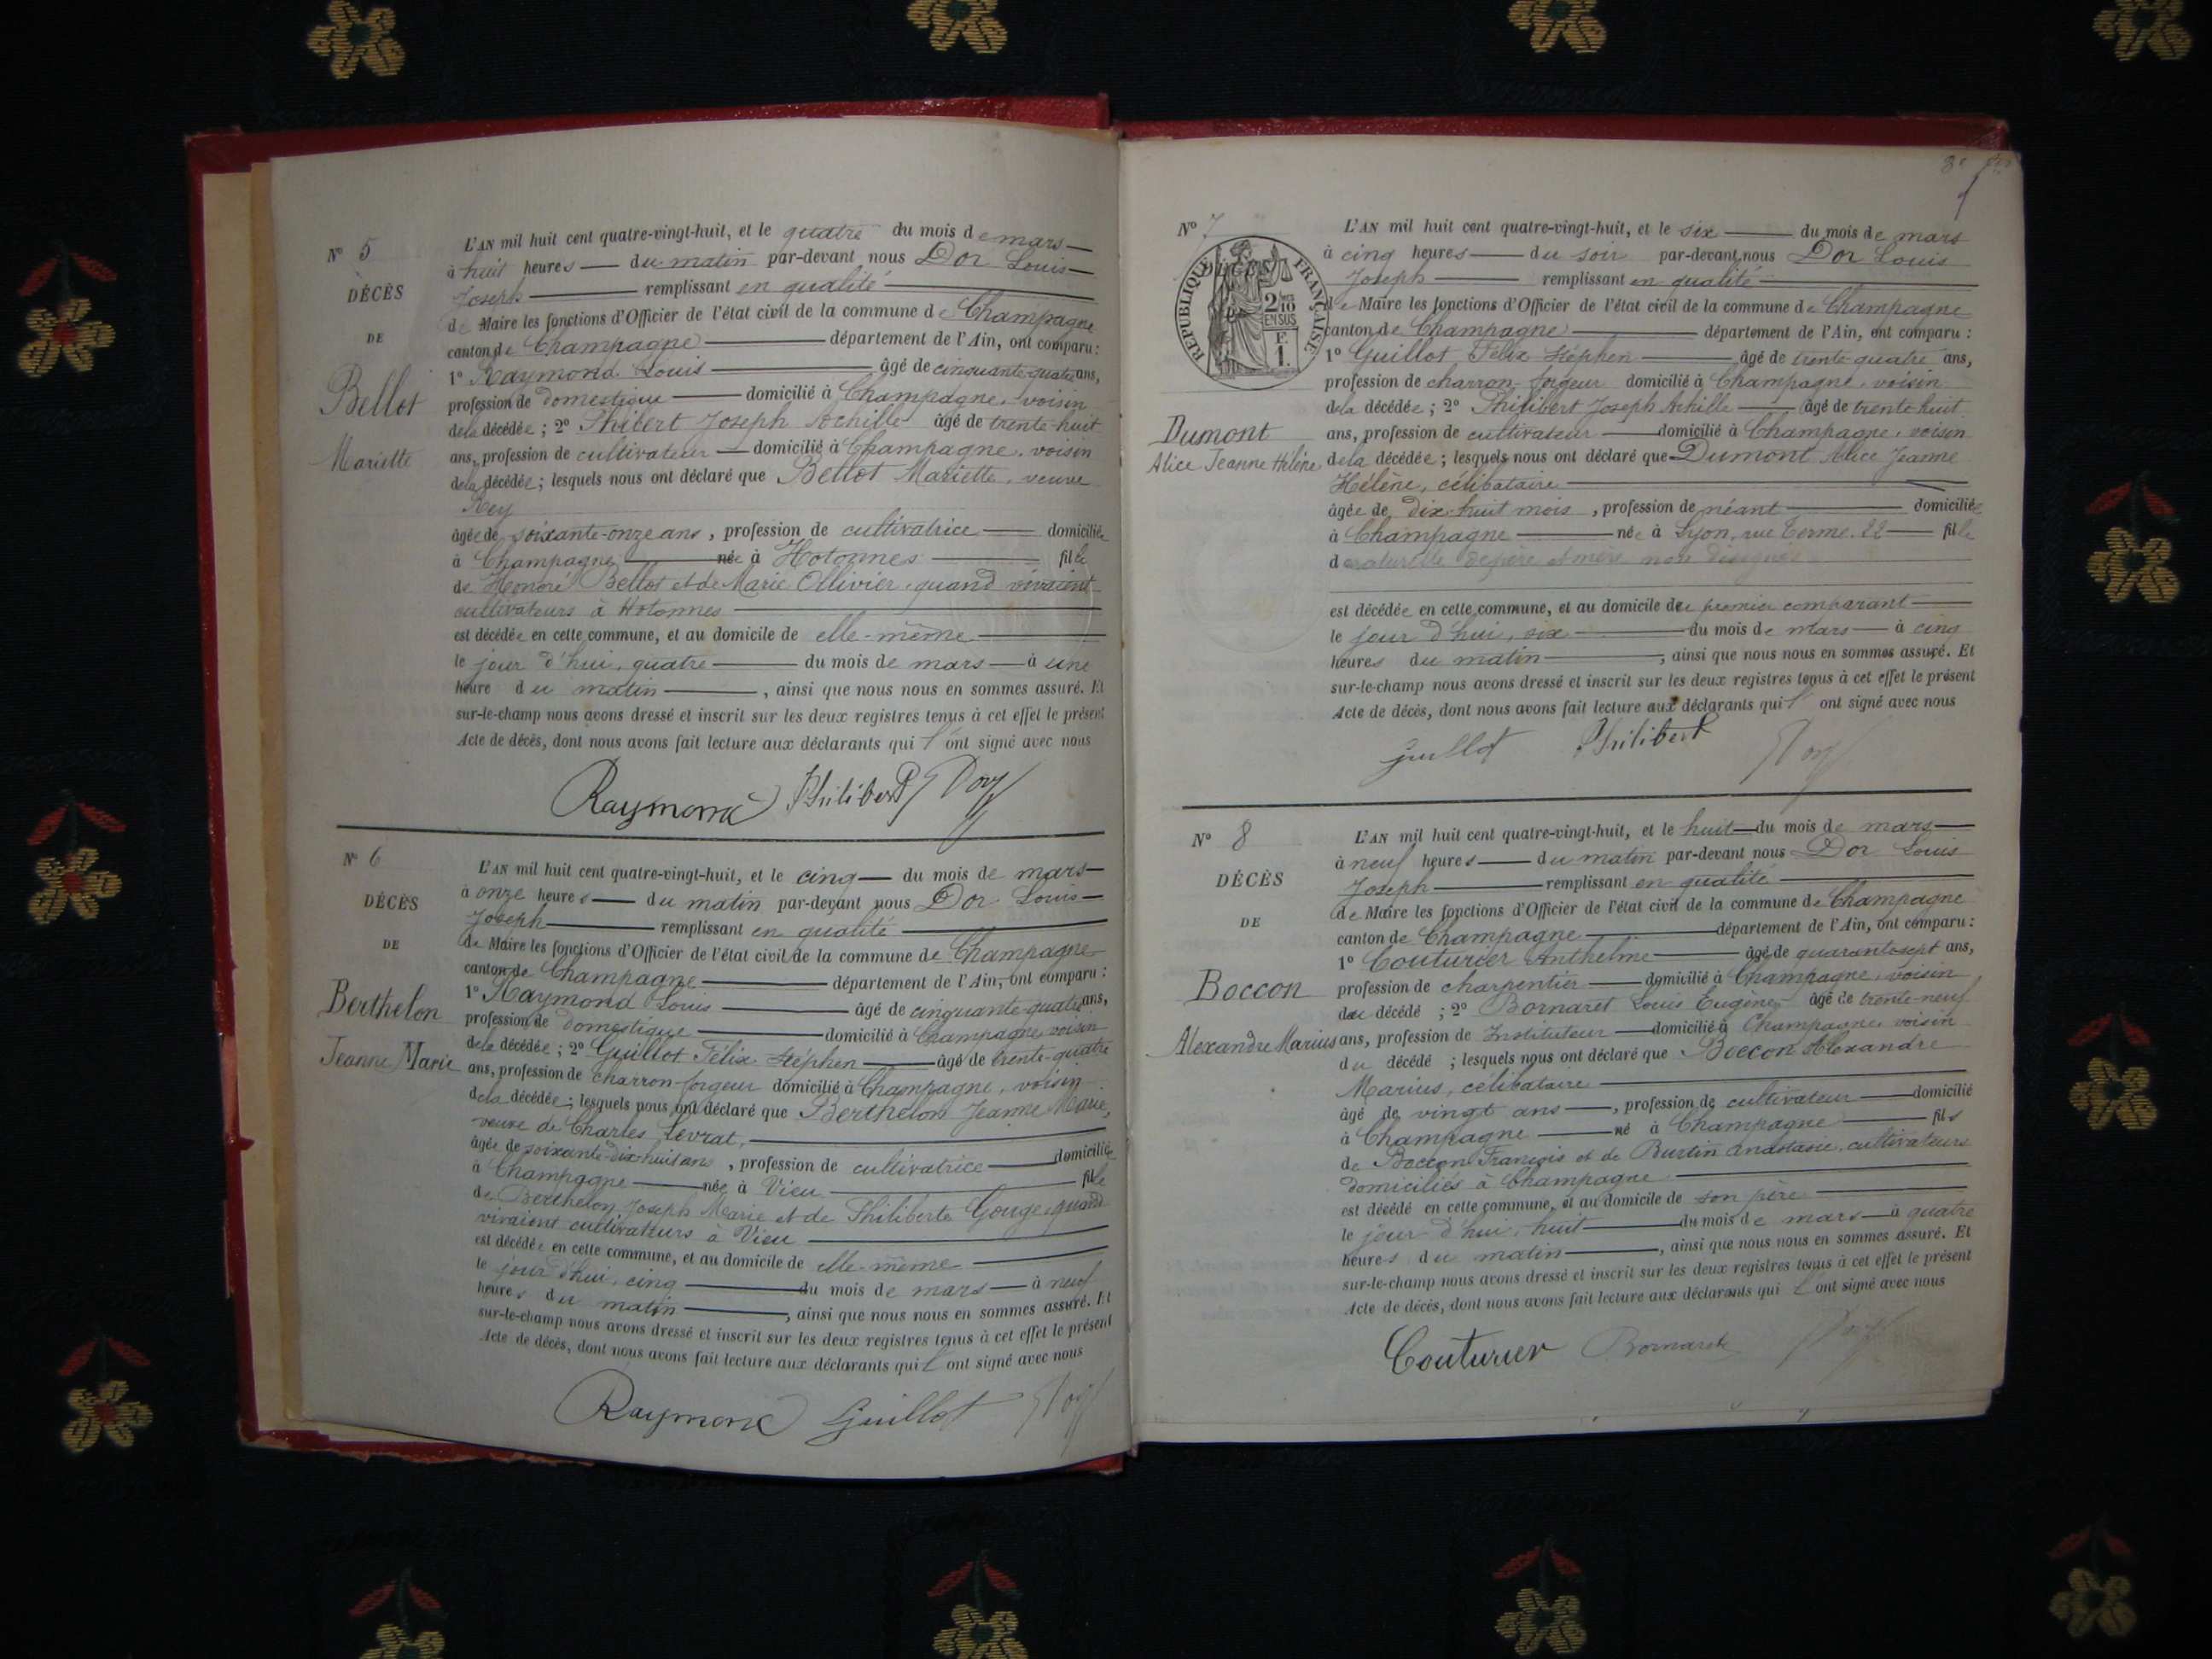 N° 5
DÉCÈS
DE
Bellot
Mariette
L'AN mil huit cent quatre-vingt-huit, et le quatre du mois de mars
à huit heures du matin par-devant nous Dor Louis
Joseph remplissant en qualité
de Maire les fonctions d'Officier de l'état civil de la commune de Champagne
canton de Champagne département de l'Ain, ont comparu :
1° Raymond Louis âgé de cinquante-quatre ans,
profession de domestique domicilié à Champagne, voisin
de la décédée ; 2° Philibert Joseph Achille âgé de trente-huit
ans, profession de cultivateur domicilié à Champagne, voisin
de la décédée ; lesquels nous ont déclaré que Bellot Mariette, veuve
Rey
âgée de soixante-onze ans, profession de cultivatrice domiciliée
à Champagne née à Hotonnes fille
de Honoré Bellot et de Marie Ollivier, quand vivaient
cultivateurs à Hotonnes
est décédée en cette commune, et au domicile de elle-même
le jour d'hui, quatre du mois de mars à une
heure du matin, ainsi que nous nous en sommes assuré. Et
sur-le-champ nous avons dressé et inscrit sur les deux registres tenus à cet effet le présent
Acte de décès, dont nous avons fait lecture aux déclarants qui l'ont signé avec nous
Raymond Philibert Dor
N° 6
DÉCÈS
DE
Berthelon
Jeanne Marie
L'AN mil huit cent quatre-vingt-huit, et le cinq du mois de mars
à onze heures du matin par-devant nous Dor Louis
Joseph remplissant en qualité
de Maire les fonctions d'Officier de l'état civil de la commune de Champagne
canton de Champagne département de l'Ain, ont comparu :
1° Raymond Louis âgé de cinquante-quatre ans,
profession de domestique domicilié à Champagne, voisin
de la décédée ; 2° Guillot Félix Stéphen âgé de trente-quatre
ans, profession de charron-forgeur domicilié à Champagne, voisin
de la décédée ; lesquels nous ont déclaré que Berthelon Jeanne Marie,
veuve de Charles Levrat,
âgée de soixante-dix-huit ans, profession de cultivatrice domiciliée
à Champagne née à Vieu fille
de Berthelon Joseph Marie et de Philiberte Gouge, quand
vivaient cultivateurs à Vieu
est décédée en cette commune, et au domicile de elle-même
le jour d'hui, cinq du mois de mars à neuf
heures du matin, ainsi que nous nous en sommes assuré. Et
sur-le-champ nous avons dressé et inscrit sur les deux registres tenus à cet effet le présent
Acte de décès, dont nous avons fait lecture aux déclarants qui l'ont signé avec nous
Raymond Guillot Dor
N° 7
RÉPUBLIQUE FRANÇAISE
2/10 EN SUS
F. 1.
Dumont
Alice Jeanne Hélène
L'AN mil huit cent quatre-vingt-huit, et le six du mois de mars
à cinq heures du soir par-devant nous Dor Louis
Joseph remplissant en qualité
de Maire les fonctions d'Officier de l'état civil de la commune de Champagne
canton de Champagne département de l'Ain, ont comparu :
1° Guillot Félix Stéphen âgé de trente-quatre ans,
profession de charron-forgeur domicilié à Champagne, voisin
de la décédée ; 2° Philibert Joseph Achille âgé de trente-huit
ans, profession de cultivateur domicilié à Champagne, voisin
de la décédée ; lesquels nous ont déclaré que Dumont Alice Jeanne
Hélène, célibataire
âgée de dix-huit mois, profession de néant domiciliée
à Champagne née à Lyon, rue Terme, 22 fille
de naturelle de père et mère non désignés
est décédée en cette commune, et au domicile du premier comparant
le jour d'hui, six du mois de mars à cinq
heures du matin, ainsi que nous nous en sommes assuré. Et
sur-le-champ nous avons dressé et inscrit sur les deux registres tenus à cet effet le présent
Acte de décès, dont nous avons fait lecture aux déclarants qui l'ont signé avec nous
Guillot Philibert Dor
N° 8
DÉCÈS
DE
Boccon
Alexandre Marius
L'AN mil huit cent quatre-vingt-huit, et le huit du mois de mars
à neuf heures du matin par-devant nous Dor Louis
Joseph remplissant en qualité
de Maire les fonctions d'Officier de l'état civil de la commune de Champagne
canton de Champagne département de l'Ain, ont comparu :
1° Couturier Anthelme âgé de quarante-sept ans,
profession de charpentier domicilié à Champagne, voisin
du décédé ; 2° Bornaret Louis Eugène, âgé de trente-neuf
ans, profession de Instituteur domicilié à Champagne, voisin
du décédé ; lesquels nous ont déclaré que Boccon Alexandre
Marius, célibataire
âgé de vingt ans, profession de cultivateur domicilié
à Champagne né à Champagne fils
de Boccon François et de Burtin Anastasie, cultivateurs
domiciliés à Champagne
est décédé en cette commune, et au domicile de son père
le jour d'hui, huit du mois de mars à quatre
heures du matin, ainsi que nous nous en sommes assuré. Et
sur-le-champ nous avons dressé et inscrit sur les deux registres tenus à cet effet le présent
Acte de décès, dont nous avons fait lecture aux déclarants qui l'ont signé avec nous
Couturier Bornaret Dor